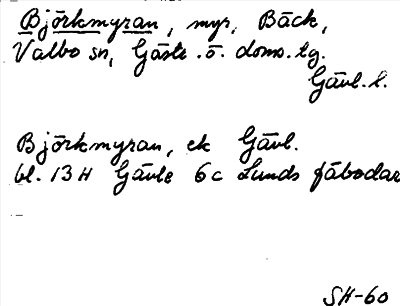 Björkmyran, myr, Bäck,
Valbo sn, Gästr. ö. doms. tg.
Gävl. l.
Björkmyran, ek Gävl.
bl. 13 H Gävle 6c Lunds fäbodar
SH-60